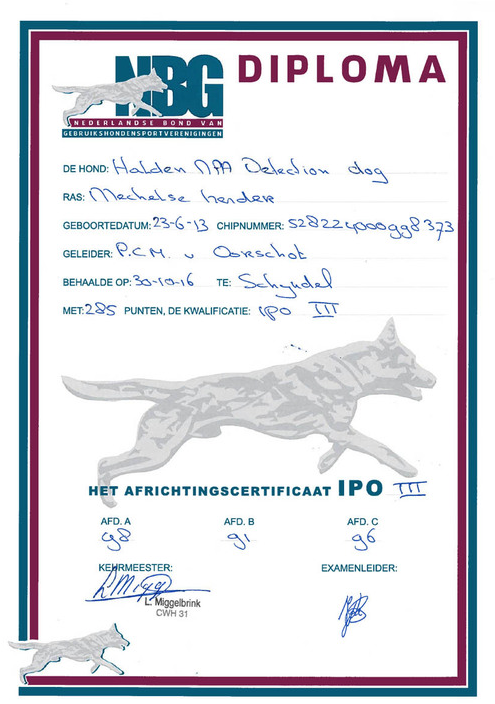 NBG DIPLOMA
NEDERLANDSE BOND VAN
GEBRUIKSHONDENSPORTVERENIGINGEN
DE HOND: Halden NPA Detection dog
RAS: Mechelse herder
GEBOORTEDATUM: 23-6-13 CHIPNUMMER: 528224000998373
GELEIDER: P.C.M. v Oorschot
BEHAALDE OP: 30-10-16 TE: Schyndel
MET: 285 PUNTEN, DE KWALIFICATIE: IPO III
HET AFRICHTINGSCERTIFICAAT IPO III
AFD. A AFD. B AFD. C
98 91 96
KEURMEESTER: EXAMENLEIDER:
L. Miggelbrink
CWH 31